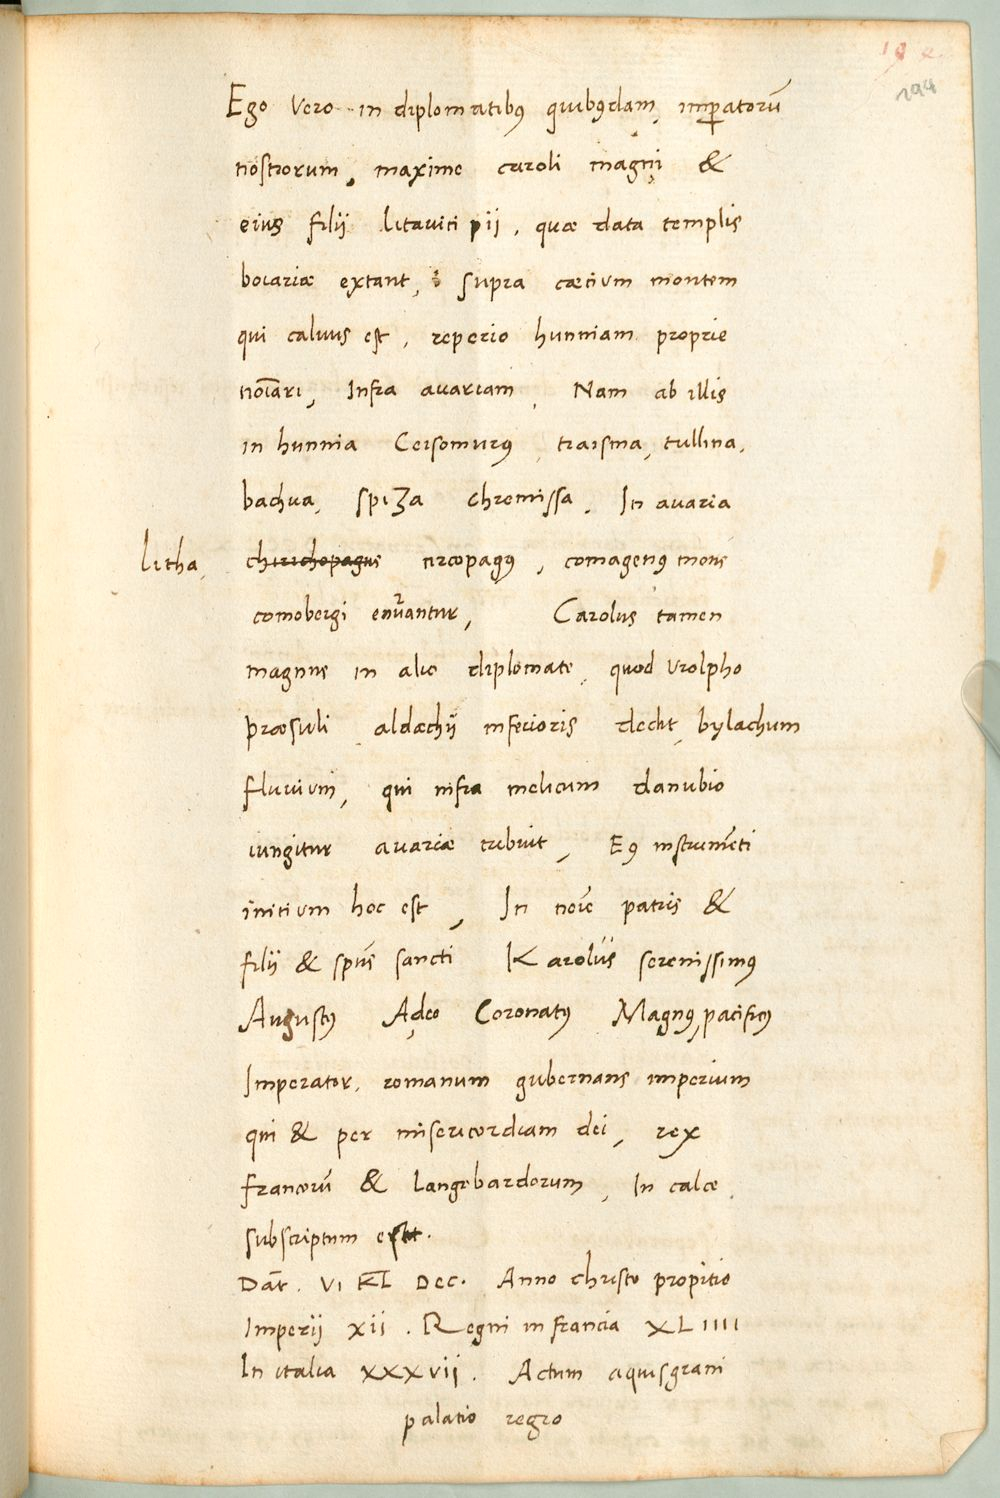 194
Ego Vero in diplomatibꝯ quibꝯdam, imꝑatorū
nostrorum, maxime caroli magni &
eius filii litauici pii, quæ data templis
boiariæ extant, supra cætium montem
qui caluus est, reperio hunniam proprie
noīari, Infra auariam. Nam ab illis
in hunnia Cersomurꝯ, traisma, tullina,
bachua, spiza chremissa. In auaria
litha, chirichopagus circopagꝯ, comagenꝯ mons
comobergi enūantur, Carolus tamen
magnus in alio diplomate, quod Vrolpho
præsuli aldæchii inferioris dedit, bylachum
fluuium, qui infra melicum danubio
iungitur auariæ tribuit, Eꝯ instrumēti
initium hoc est, In noīe patris &
filii & spūs sancti Karolus serenissimꝯ
Augustꝯ Adeo Coronatꝯ Magnꝯ, pacificꝯ
Imperator, romanum gubernans imperium
qui & per misericordiam dei, rex
francorū & Langobardorum, In calce
subscriptum est.
Dāt. VI KL Dec. Anno christo propitio
Imperii xii. Regni in francia XLIIII
In italia xxxvii. Actum aquisgrani
palatio regio